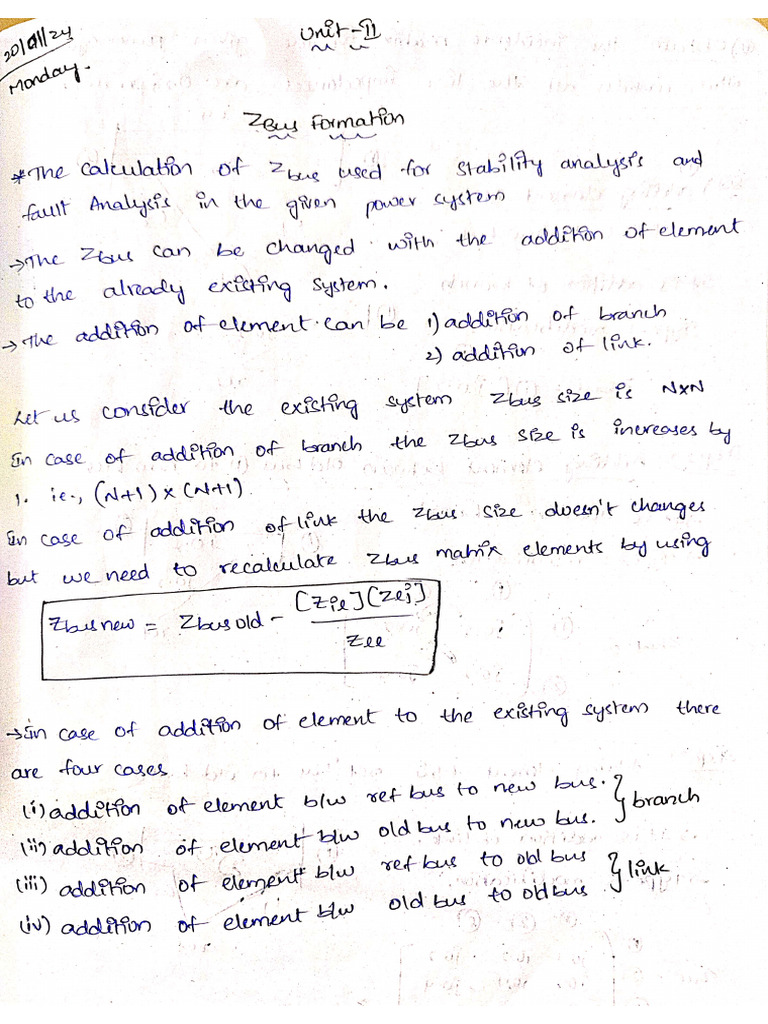 20/01/24
Monday.
Unit-II
ZBus Formation
*The calculation of Zbus used for stability analysis and
fault Analysis in the given power system
→The Zbus can be changed with the addition of element
to the already existing system.
→The addition of element can be 1) addition of branch
2) addition of link.
Let us consider the existing system Zbus size is N×N
In case of addition of branch the Zbus size is increases by
1. ie., (N+1) × (N+1)
In case of addition of link the Zbus size doesn't changes
but we need to recalculate Zbus matrix elements by using
Zbus new = Zbus old - [Zil][Zlj] / Zll
→In case of addition of element to the existing system there
are four cases
(i) addition of element b/w ref bus to new bus. } branch
(ii) addition of element b/w old bus to new bus.
(iii) addition of element b/w ref bus to old bus } link
(iv) addition of element b/w old bus to old bus